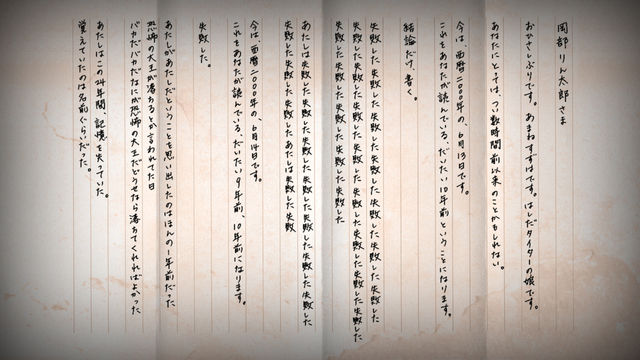 岡部りん太郎さま
おひさしぶりです。あまねすずはです。はしだタイターの娘です。
あなたにとっては、つい数時間前以来のことかもしれない。
今は、西暦二〇〇〇年の、6月13日です。
これをあなたが読んでいる、だいたい10年前ということになります。
結論だけ、書く。
失敗した失敗した失敗した失敗した失敗した失敗した失敗した失敗した
失敗した失敗した失敗した失敗した失敗した失敗した失敗した失敗した
失敗した失敗した失敗した失敗した失敗した
あたしは失敗した失敗した失敗した失敗した失敗した失敗した失敗した
失敗した失敗した失敗したあたしは失敗した失敗
今は、西暦二〇〇〇年の、6月14日です。
これをあなたが読んでいる、だいたい9年前、10年前になります。
失敗した。
あたしがあたしだということを思い出したのはほんの1年前だった
恐怖の大王が落ちるとか言われてた日
バカだバカだなにが恐怖の大王だどうせなら落ちてくれればよかった
あたしはこの24年間、記憶を失っていた。
覚えていたのは名前ぐらいだった。